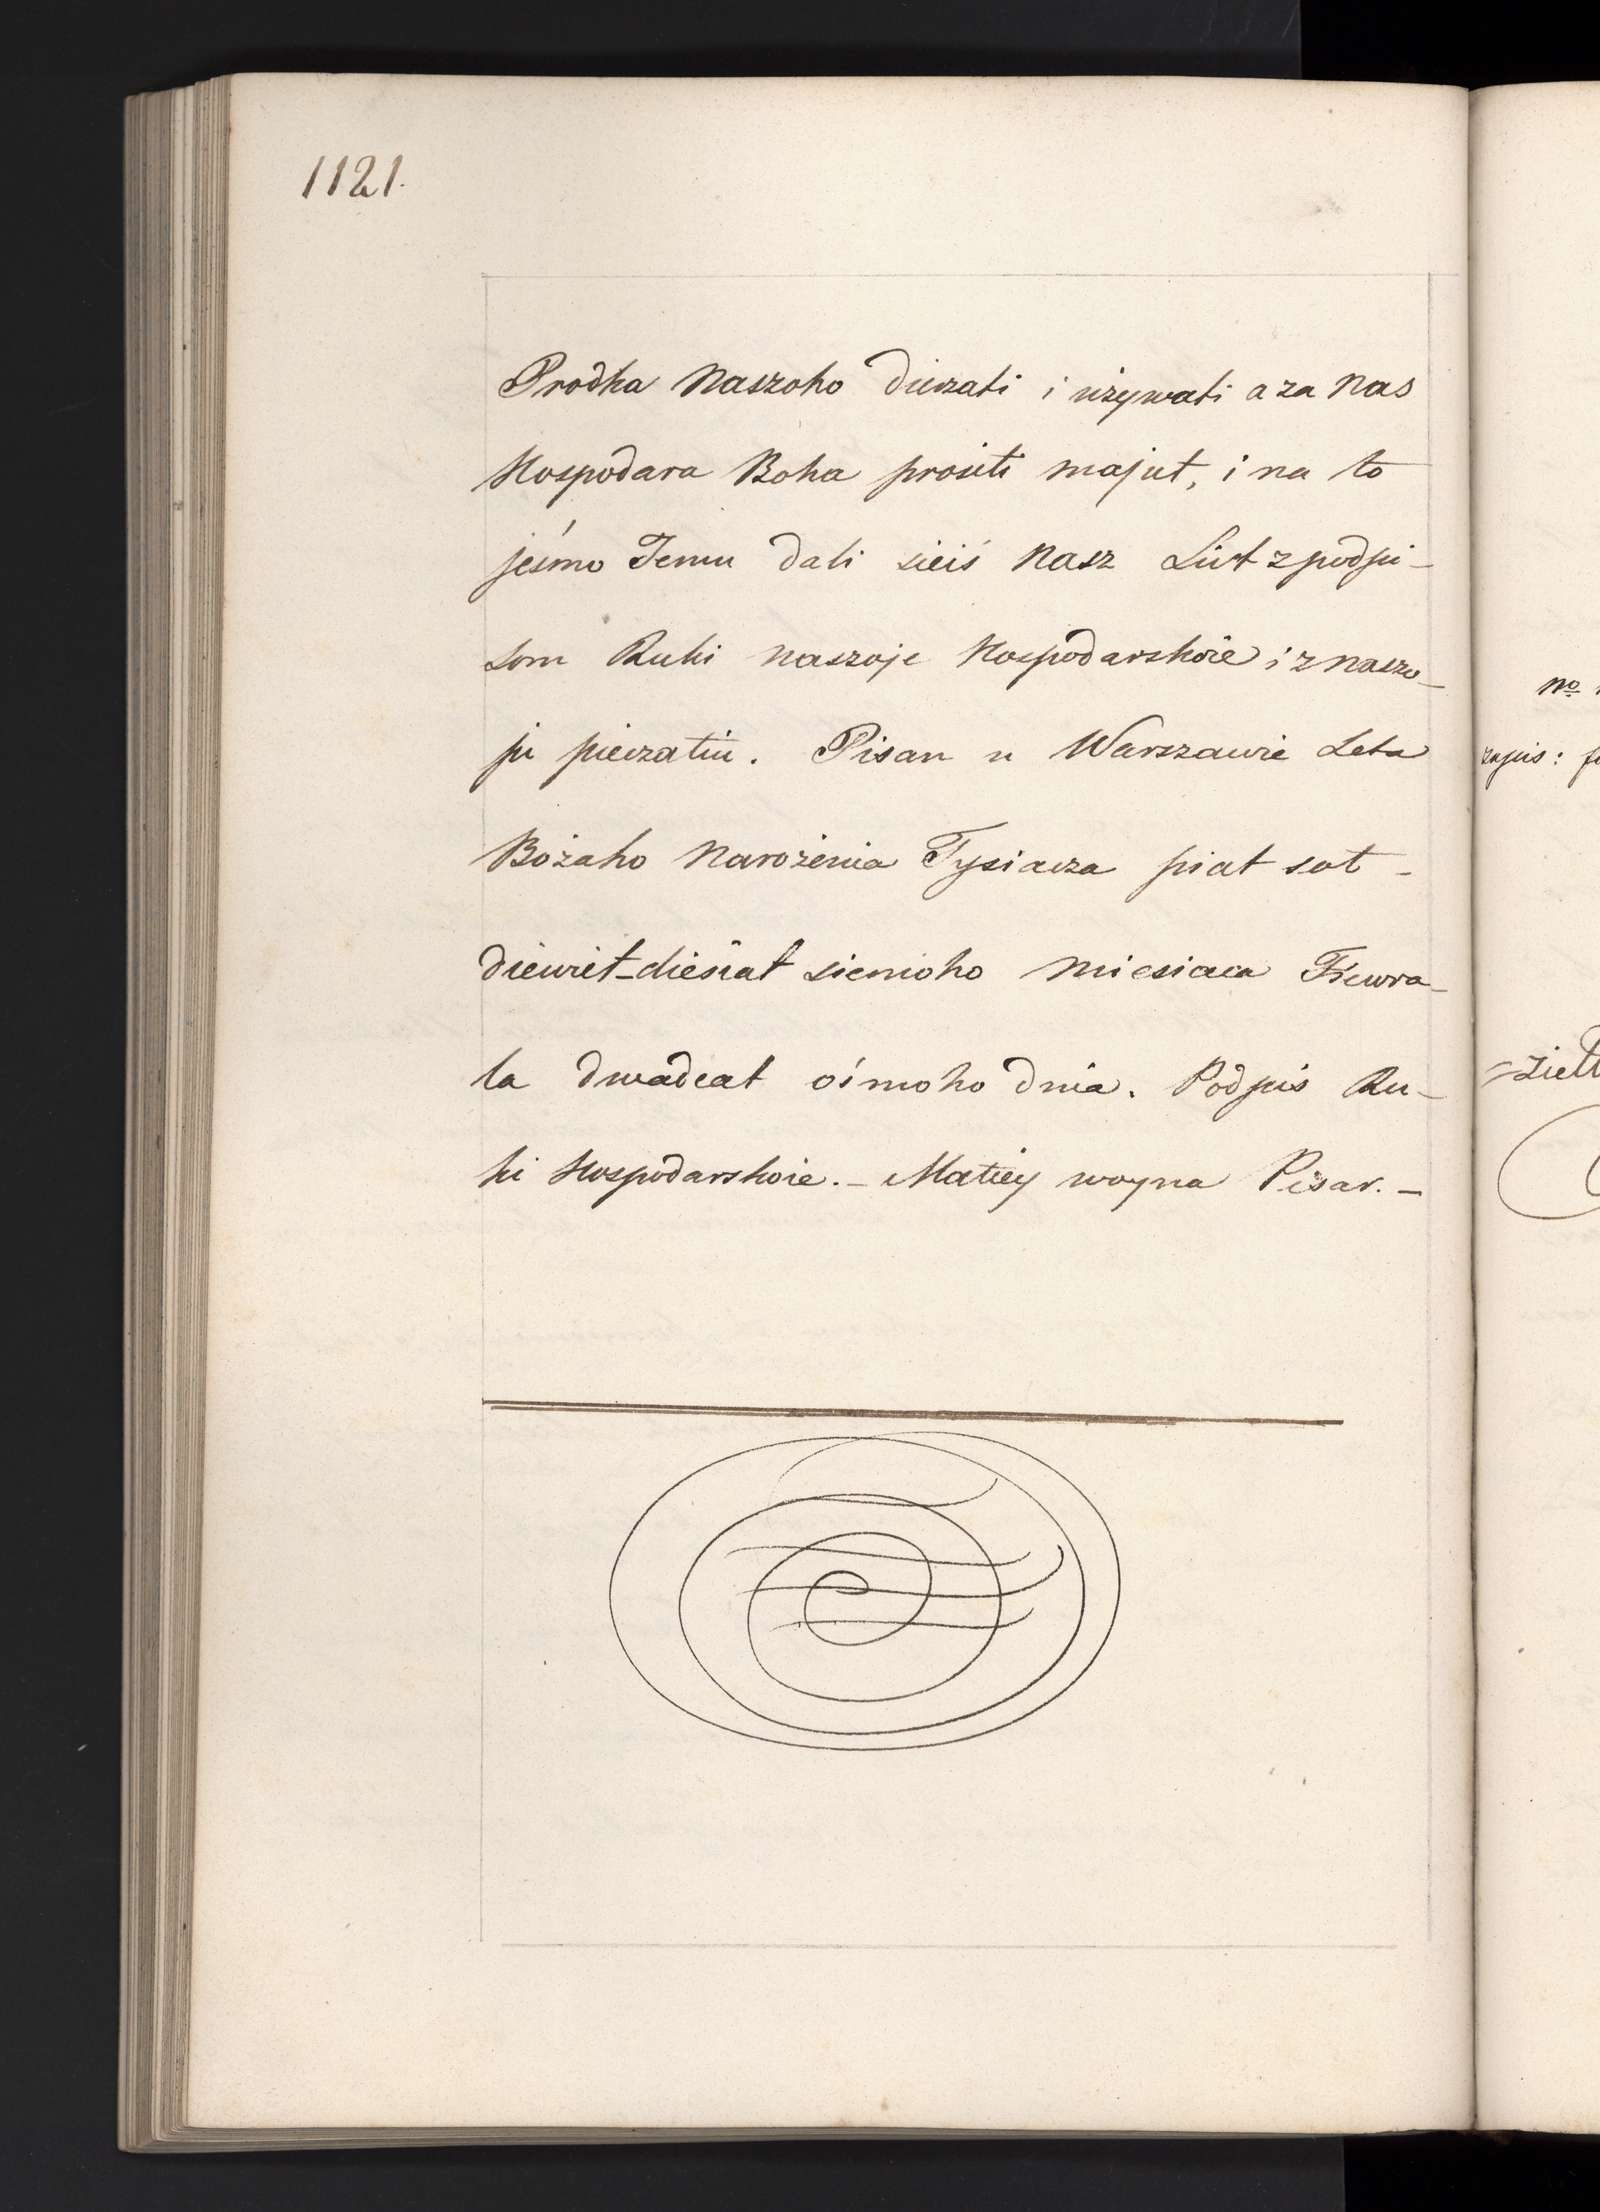 1121.
Prodka Naszoho dierzati i używati a za Nas
Hospodara Boha prositi majut, i na to
jeśmo Jemu dali sieiś Nasz List z podpi-
som Ruki naszoje Hospodarskoie i z naszo-
ju pieczatiu. Pisan u Warszawie Leta
Bożaho Narożenia Tysiacza piat sot -
diewiet-diesiat siemoho Miesiaca Fiewra-
la dwadcat ośmoho dnia. Podpis Ru-
ki Hospodarskoie. - Matiey woyna Pisar. -
No
zapis: